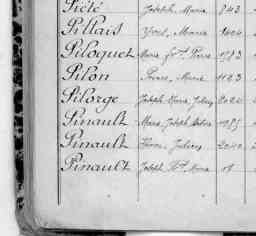 Piété Joseph, Marie 843
Pillais Yves, Marie
Piloquet Marie Pierre 1783
Pilon Pierre, Marie 1123
Pilorge Joseph Marie Julien 2024
Pinault Marie, Joseph 1785
Pinault Julien 2040
Pinault Joseph Marie